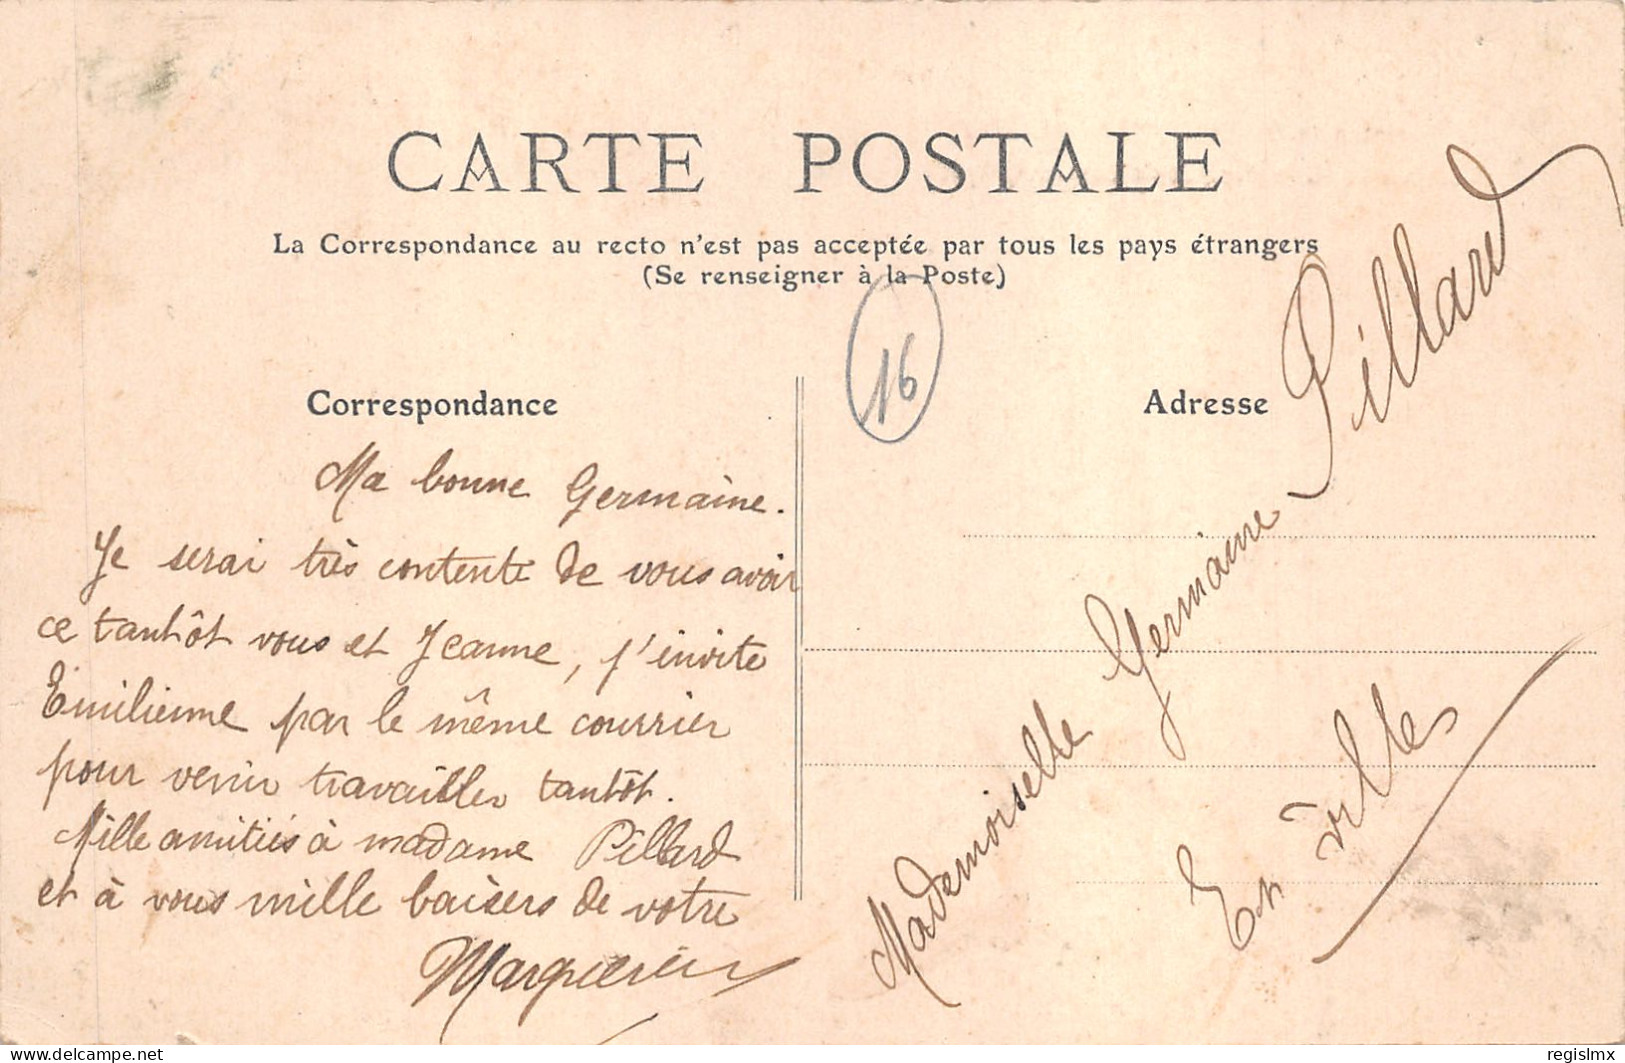 CARTE POSTALE
La Correspondance au recto n'est pas acceptée par tous les pays étrangers
(Se renseigner à la Poste)
16
Correspondance
Ma bonne Germaine.
Je serai très contente de vous avoir
ce tantôt vous et Jeanne, j'invite
Emilienne par le même courrier
pour venir travailler tantôt.
Mille amitiés à madame Pillard
et à vous mille baisers de votre
Adresse
Mademoiselle Germaine Pillard
En ville
delcampe.net
regislmx